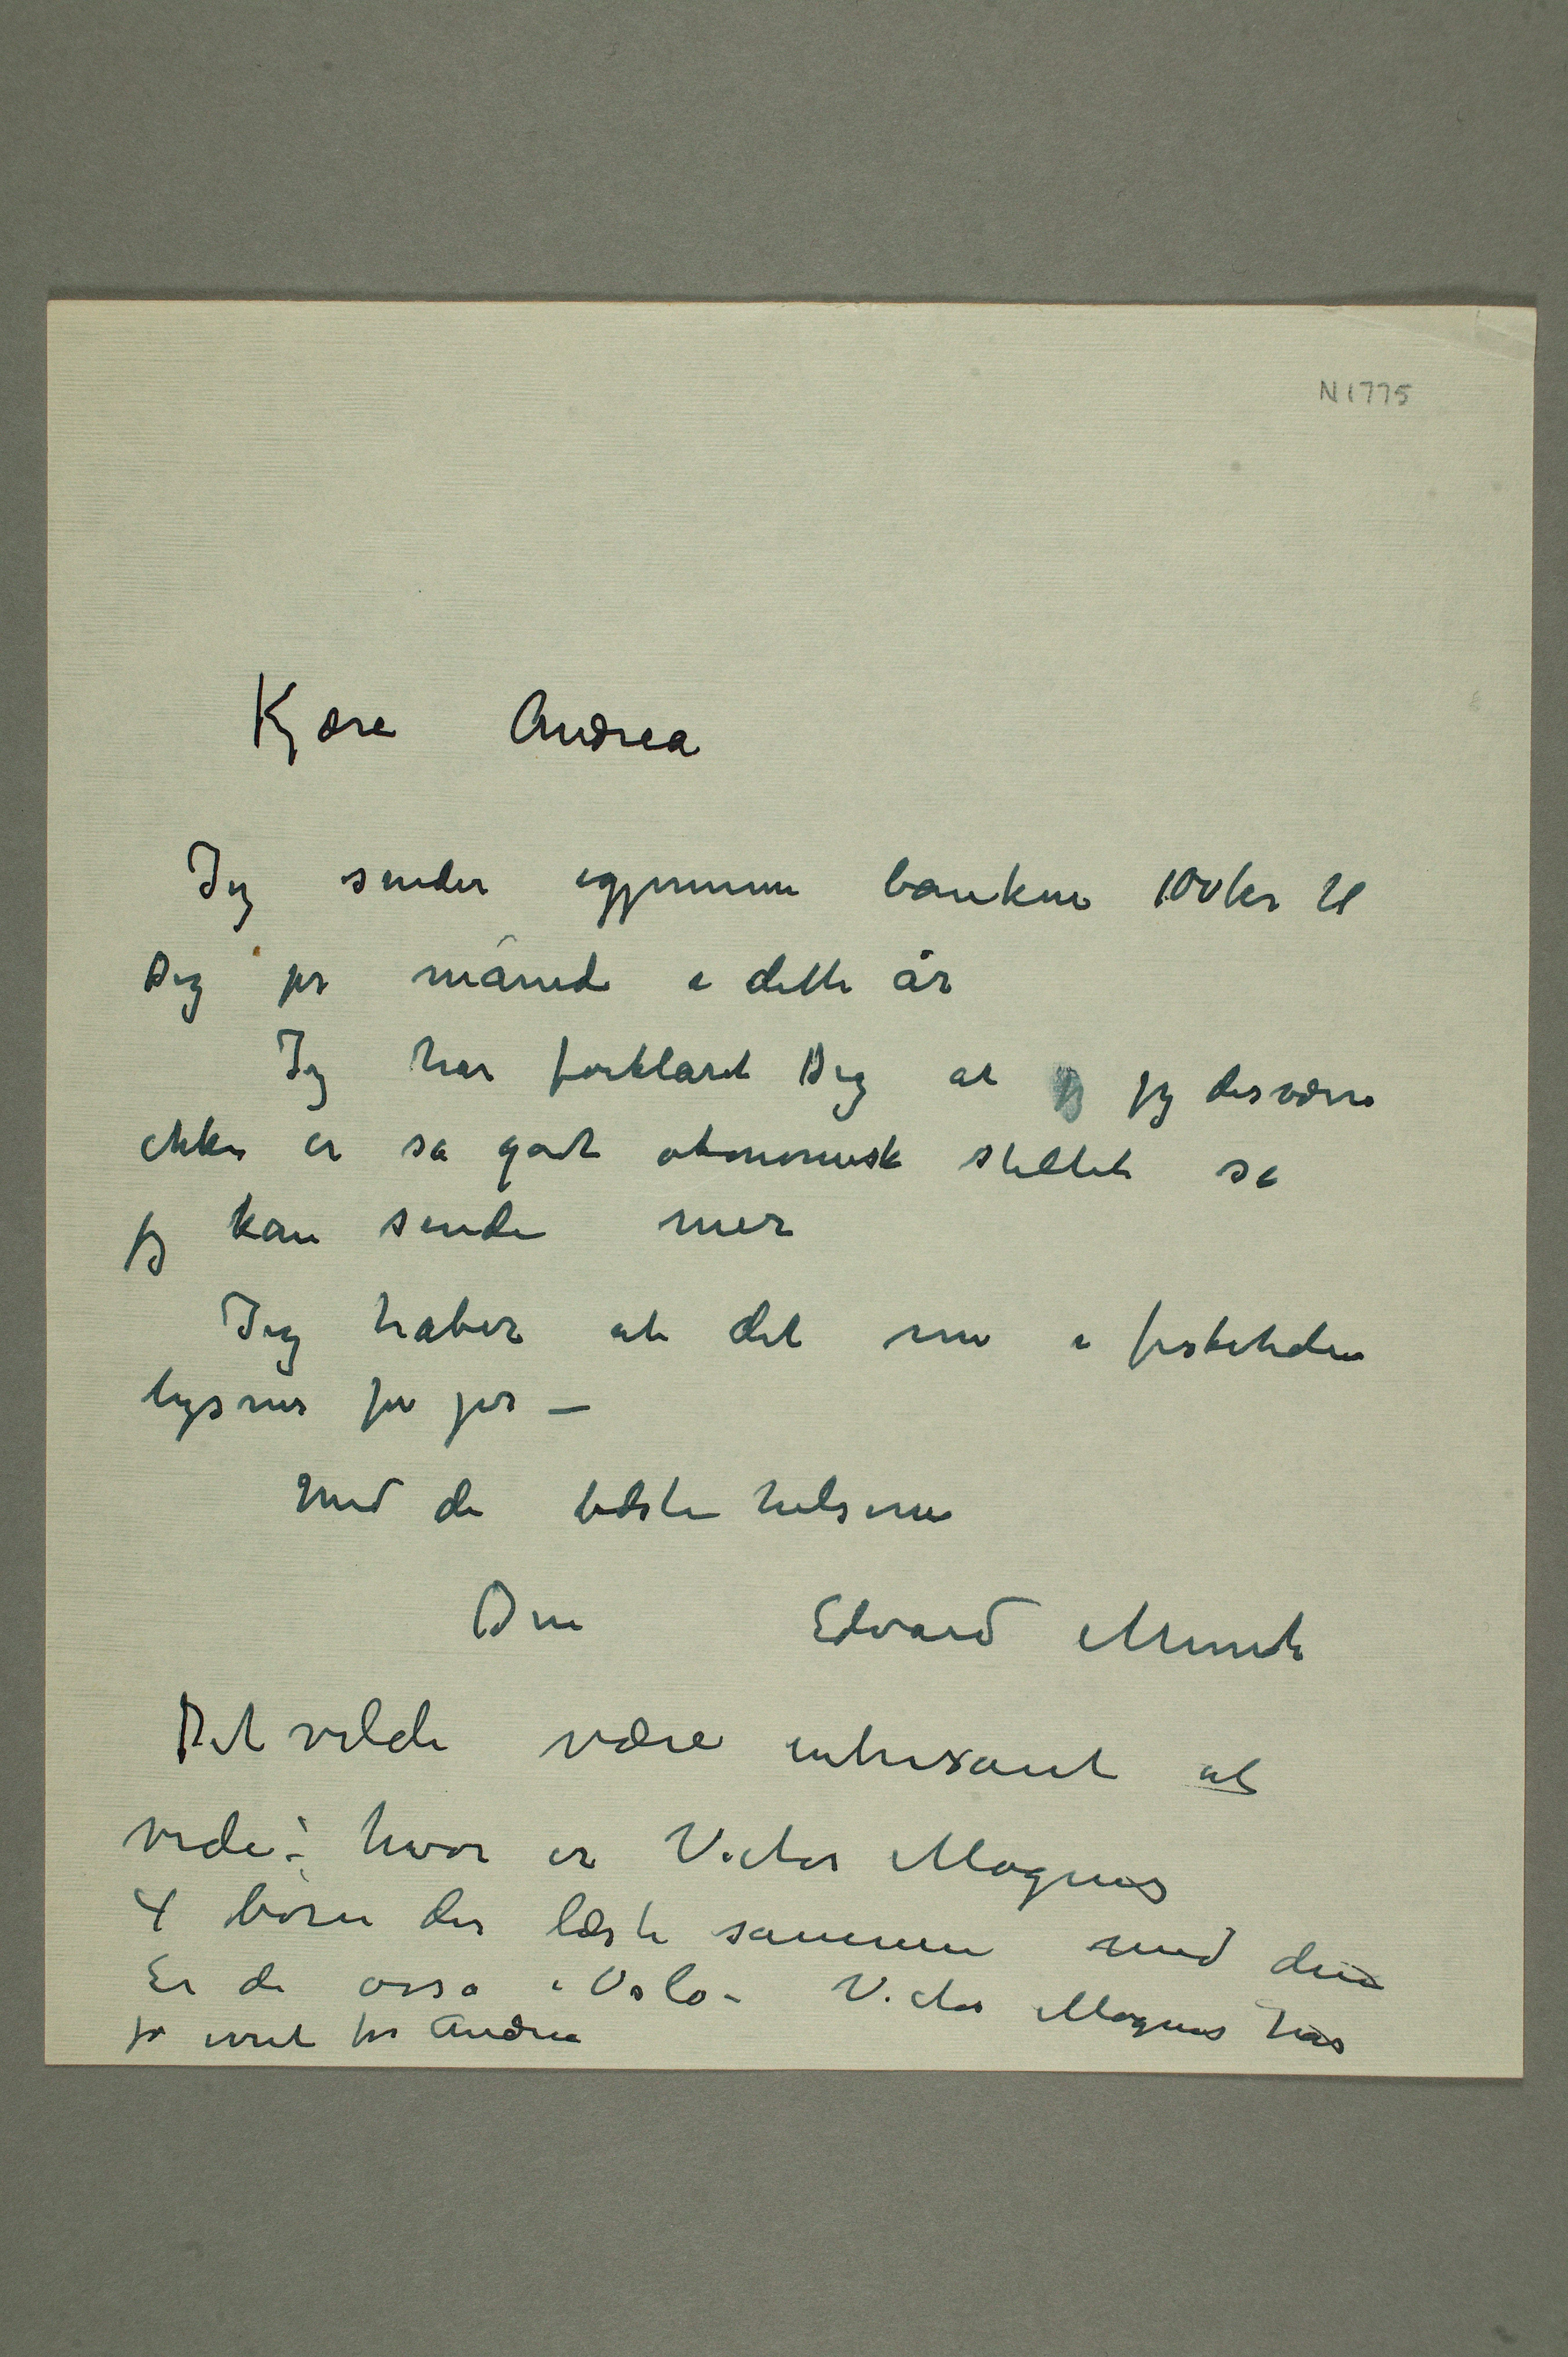 N 1775
Kjære Andrea
Jeg sender igjennem banken 100 kr til
Dig pr måned i dette år
Jeg har forklaret Dig at jeg desværre
ikke er så godt økonomisk stillet så
jeg kan sende mer
Jeg håber at det nu i fisketiden
lysner for jer –
Med de bedste hilsener
Din Edvard Munch
Det vilde være intresant at
vide: hvor er Victor Magnus
4 børn der læste sammen med din
Er de osså i Oslo – Victor Magnus har
jo ivret for Andrea